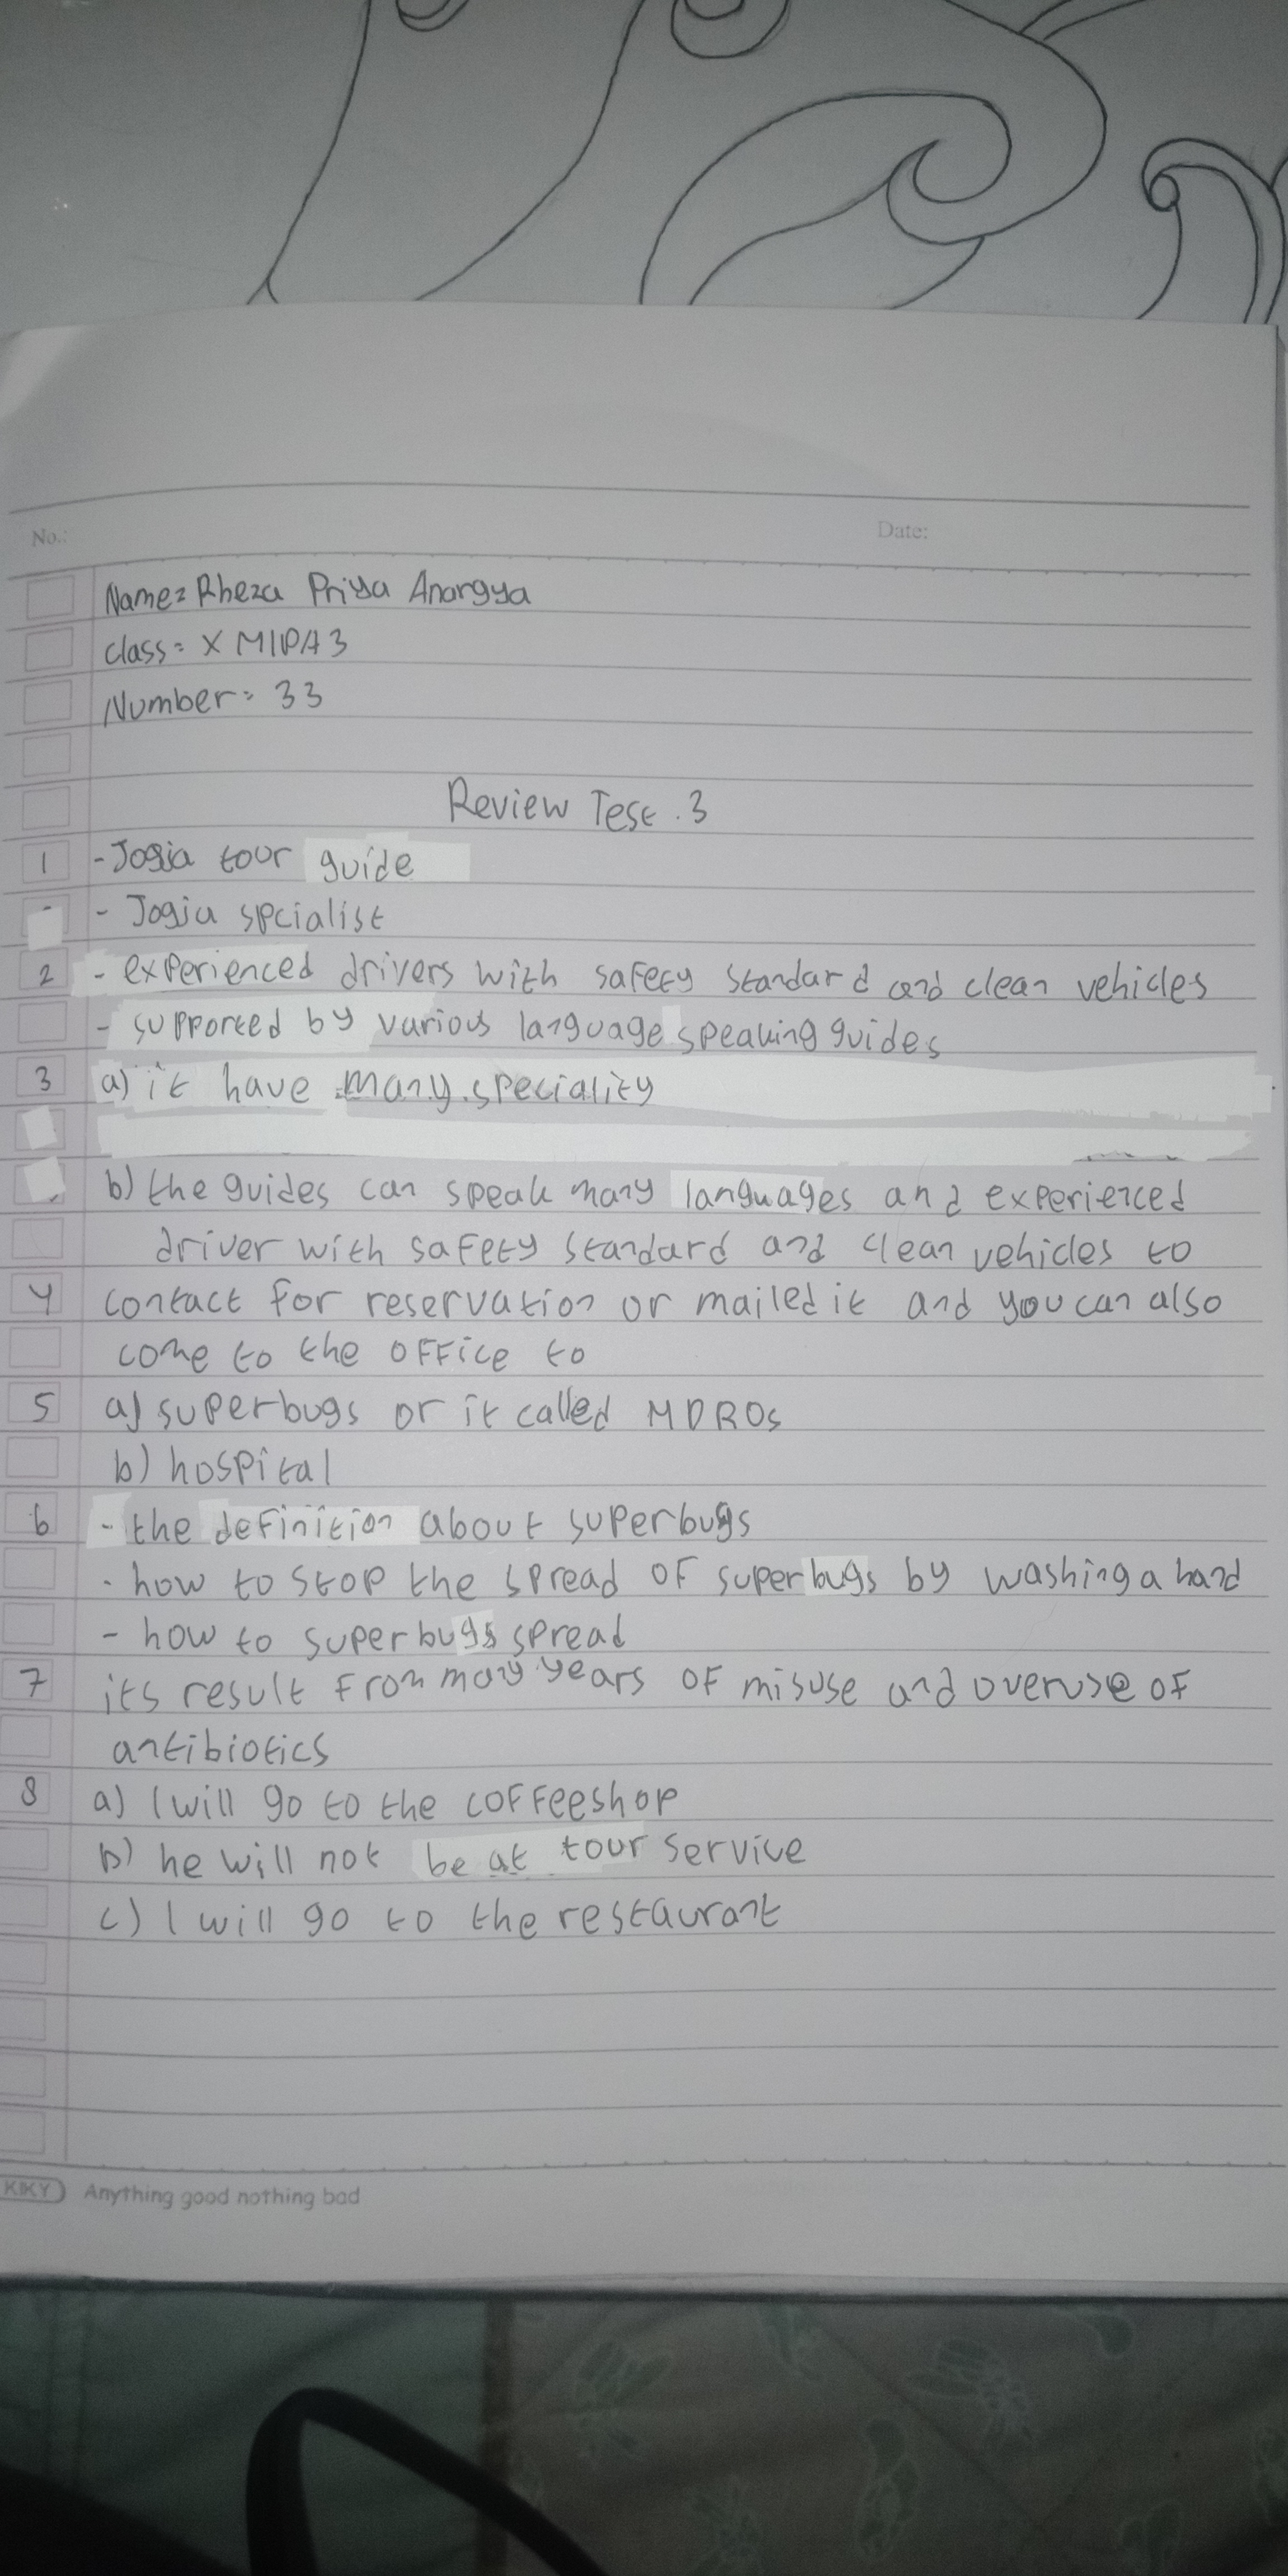 No.:
Date:
Name= Rheza Priya Anargya
class= X MIPA 3
Number= 33
Review Test .3
1 - Jogja tour guide
- Jogja spcialist
2 - experienced drivers with safety standard and clean vehicles
- supported by various language speaking guides
3 a) it have many speciality
b) the guides can speak many languages and experienced
driver with safety standard and clean vehicles to
4 contact for reservation or mailed it and you can also
come to the office to
5 a) superbugs or it called MDROs
b) hospital
6 - the definition about superbugs
- how to stop the spread of superbugs by washing a hand
- how to superbugs spread
7 its result from many years of misuse and overuse of
antibiotics
8 a) I will go to the coffeeshop
b) he will not be at tour service
c) I will go to the restaurant
KIKY Anything good nothing bad